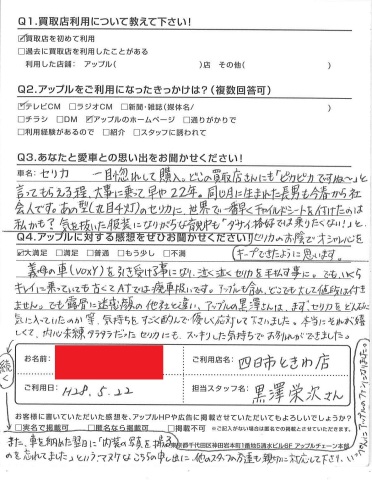 Q1.買取店利用について教えて下さい!
☑買取店を初めて利用
□過去に買取店を利用したことがある
利用した店舗: アップル( )店 その他( )
Q2.アップルをご利用になったきっかけは?(複数回答可)
☑テレビCM □ラジオCM □新聞・雑誌(媒体名/ )
□チラシ □DM ☑アップルのホームページ □通りがかりで
□利用経験があるので □紹介 □スタッフに誘われて
Q3.あなたと愛車との思い出をお聞かせください!
車名: セリカ 一目惚れして購入。どこの買取店さんにも「ピカピカですね〜」と
言ってもらえる程、大事に乗って早や22年。同じ月に生まれた長男も今春から社
会人です。あの型(丸目4灯)のセリカに、世界で一番早くチャイルドシートを付けたのは
私かも? 気を抜いた服装になりがちな育児中も「ダサイ格好では乗りたくない!」と、
Q4.アップルに対する感想をぜひお聞かせください! セリカのお陰でオシャレ心を
☑大満足 □満足 □普通 □もう少し □不満 キープできたように思います。
義母の車(VOXY)を引き受ける事になり、泣く泣くセリカを手放す事に。でも、いくら
キレイに乗っていても古くてATでは廃車扱いです。アップルも含め、どこでも大して値段は付きま
せん。でも露骨に迷惑顔の他社と違い、アップルの黒澤さんは、まずセリカをどんなに
気に入っていたのか等、気持ちをすごく酌んで優しく応対して下さいました。本当にそれが嬉
しくて、内心未練タラタラだったセリカにも、スッキリした気持ちでお別れができました。
お名前:
ご利用日: H28.5.22
ご利用店名: 四日市ときわ店
担当スタッフ名: 黒澤栄次さん
続く
お客様に書いていただいた感想を、アップルHPや広告に掲載させていただいてもよろしいでしょうか?
□実名で掲載可 □匿名なら掲載可 □掲載不可 ※ご記入がない場合は匿名での掲載とさせていただきます。
東京都千代田区神田岩本町1番地5清水ビルGF アップルチェーン本部
また、車を納めた翌日に「内装の写真を撮る
のを忘れました」という、マヌケなこちらの申し出に、他のスタッフの方達も親切に対応して下さり、いっ
ぺんにアップルのファンになりました。